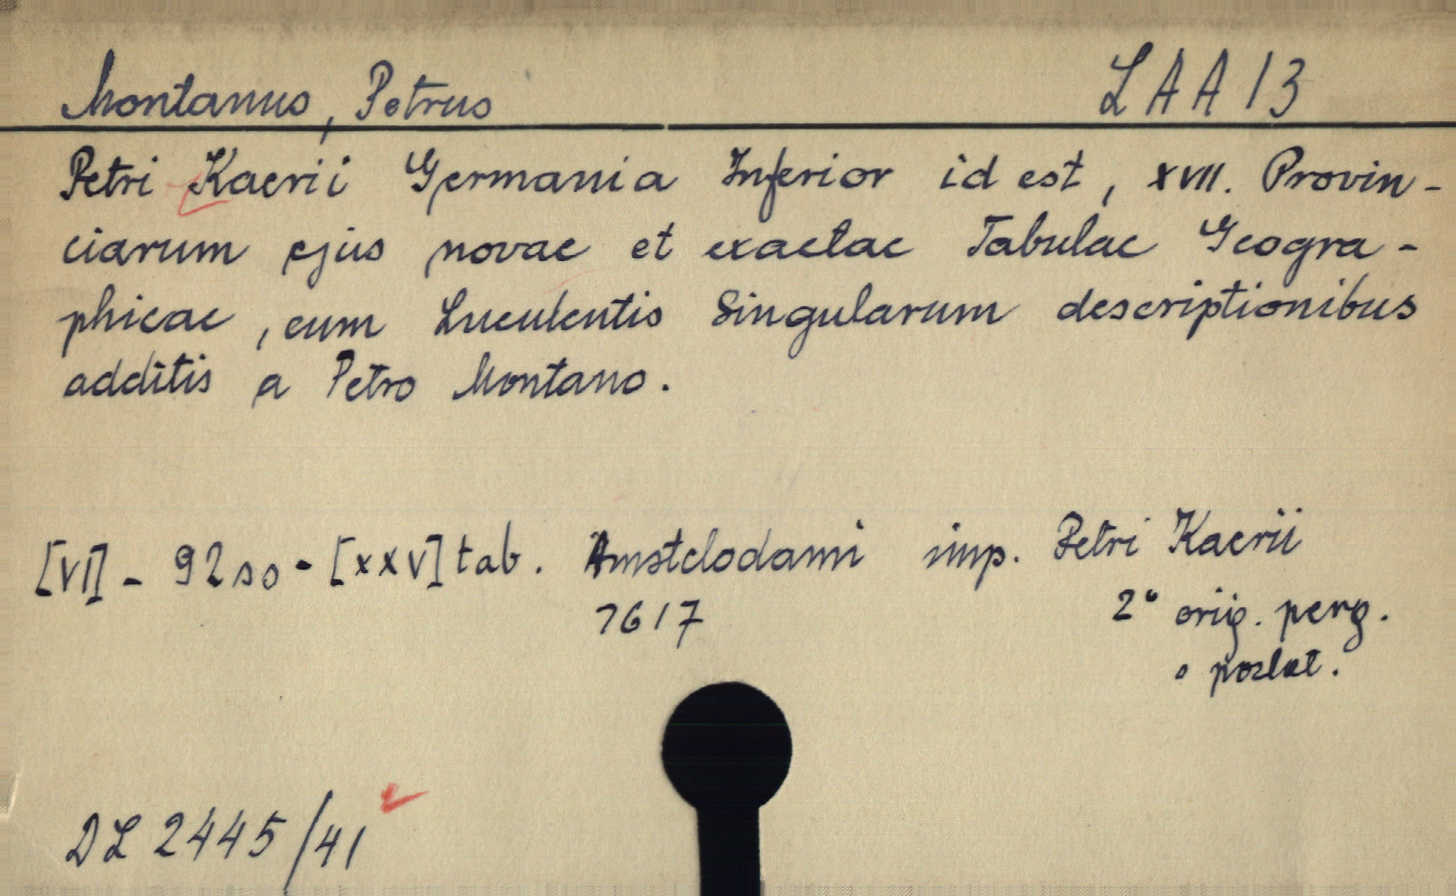 Montanus, Petrus LAA 13
Petri Kaerii Germania Inferior id est, XVII. Provin-
ciarum ejus novae et exactae Tabulae Geogra-
phicae, cum Luculentis Singularum descriptionibus
additis a Petro Montano.
[VI] - 92 so - [XXV] tab. Amstelodami imp. Petri Kaerii
1617 2° orig. perg.
pozlat.
DL 2445/41